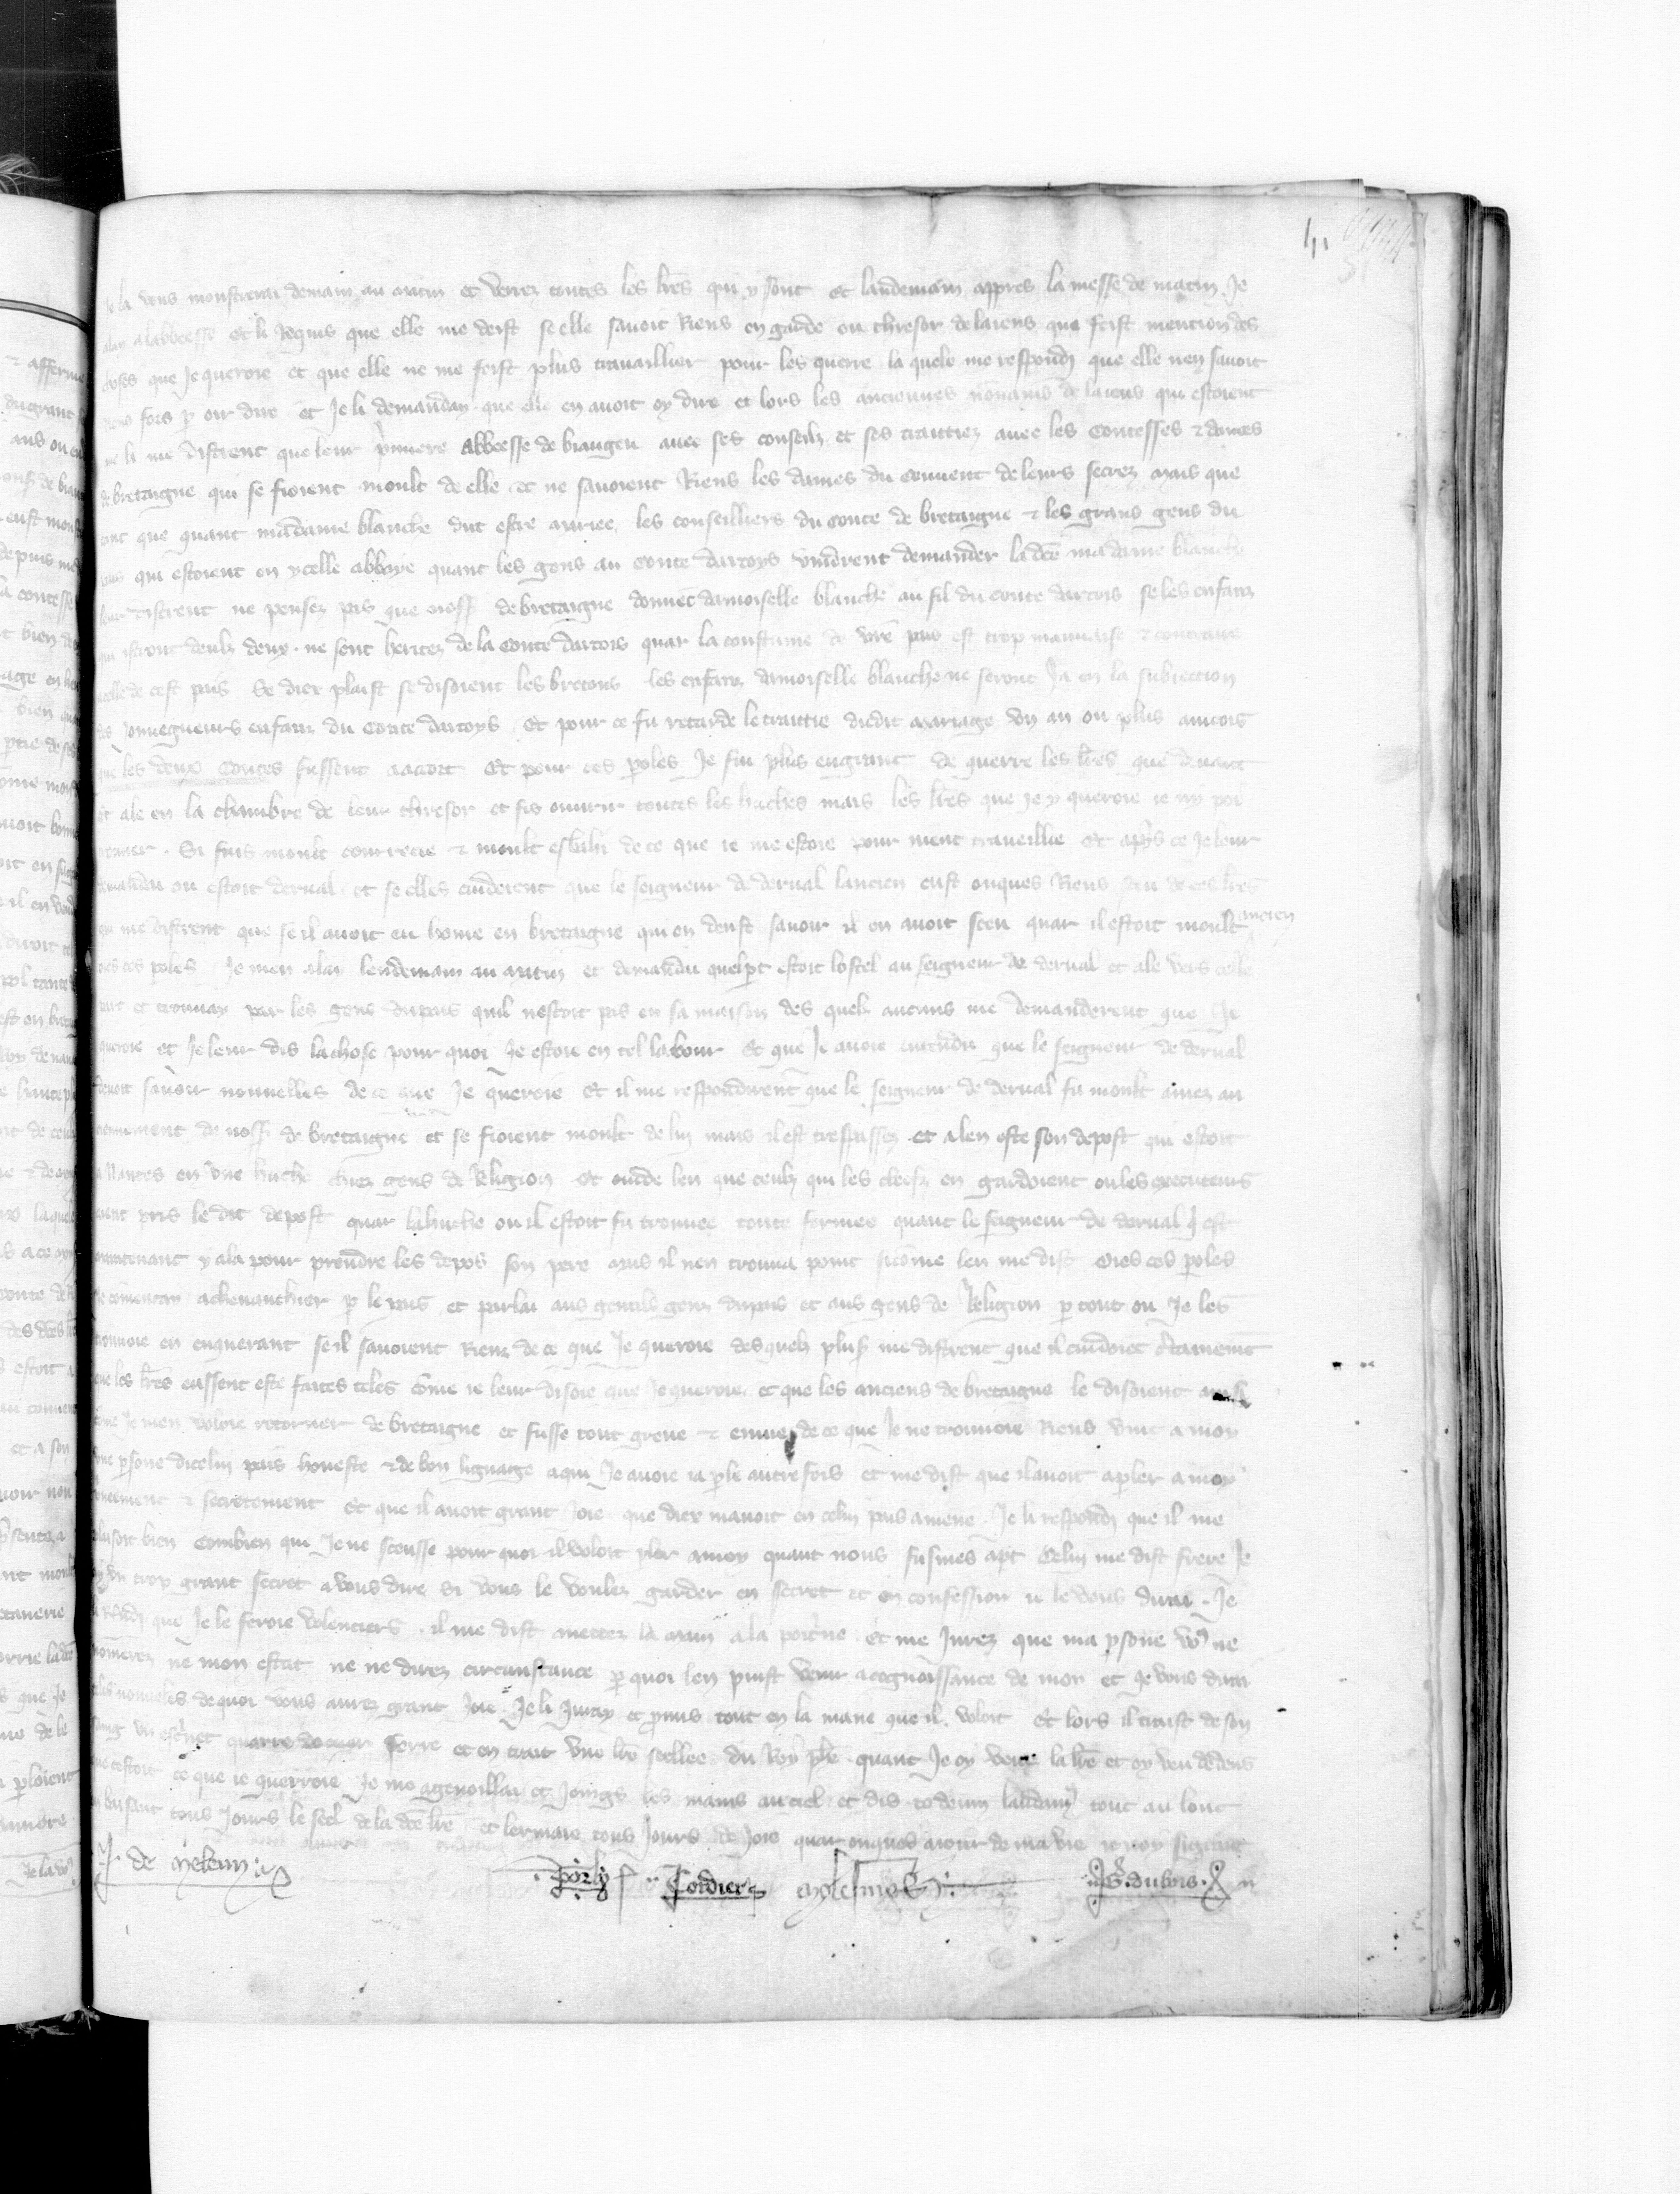 41
la vous monstrerai demain au matin et verrez toutes les lres qui y sont et landemain appres la messe de matin Je
alai a labbeesse et li Requis que elle me deist se elle savoit Riens en garde ou thresor de laiens que feist mention des
choses que Je queroie et que elle ne me feist plus travaillier pour les querre la quele me respondi que elle nen savoit
Riens fors p oir dire et Je li demanday que elle en avoit oy dire et lors les anciennes nonains de laiens qui estoient
o li me distrent que leur pmiere Abbeesse de biaugeu avec ses conseilz et ses traittiez avec les Contesses & dames
de bretaigne qui se fioient moult de elle et ne savoient Riens les dames du Couvent de leurs secrez mais que
tant que quant madame blanche dut estre mariee les conseilliers du Conte de bretaigne & les grans gens du
pais qui estoient en ycelle abbaye quant les gens au Conte dartoys vindrent demander la dce madame blanche
leur distrent ne pensez pas que mess de bretaigne donnet damoiselle blanche au fil du Conte dartois se les enfanz
qui istront deulz deux ne sont heritez de la Conte dartois quar la coustume de vre pais est trop mauvaise & contraire
a celle de cest pais Se diex plaist se disoient les bretons les enfanz damoiselle blanche ne seront Ja en la subiection
des Jouvegneurs enfanz du Conte dartoys Et pour ce fu retarde le traittie dudit mariage un an ou plus aincois
que les deux Contes fussent acort Et pour ces poles Je fui plus engrant de querre les lres que devant
et ale en la chambre de leur thresor et fis ouvrir toutes les huches mais les lres que Je y queroie ie ny poi
trouver Si fuis moult courrecie & moult esbahi de ce que ie me estoie pour nient traveillie Et apres ce Je leur
demandai ou estoit derval et se elles cuiderent que le seigneur de derval lancien eust onques Riens sceu de ces lres
qui me distrent que se il avoit eu home en bretaigne qui en deust savoir il en avoit sceu quar il estoit moult ancien
oies ces poles Je men alai lendemain au matin et demandai quelpt estoit lostel au seigneur de derval et ale vers celle
part et trouvay par les gens du pais quil nestoit pas en sa maison des quelz aucuns me demanderent que Je
queroie et Je leur dis la chose pour quoi Je estoie en tel labour Et que Je avoie entendu que le seigneur de derval
devoit savoir nouvelles de ce que Je queroie Et il me respondirent que le seigneur de derval fu moult amez au
de noss de bretaigne et se fioient moult de lui mais il est trespassez et alen oste son depost qui estoit
a Nantes en une huche chiez gens de Religion Et cuide len que ceulz qui les clefs en gardoient ou les executeurs
aient pris le dit depost quar la huche ou il estoit fu trouvee toute fermee quant le seigneur de derval q est
maintenant y ala pour prendre les depos son pere mais il nen trouva point sicome len me dist Oies ces poles
Je comencay a chevauchier p le pais et parlai aus gentilz genz du pais et aus gens de Religion p tout ou Je les
trouvoie en enquerant se il savoient Rienz de ce que Je queroie desquelz plus me distrent que il cuidoiet ctainemt
que les lres eussent este faites teles come ie leur disoie que Je queroie et que les anciens de bretaigne le disoient ausi
Come Je men voloie retorner de bretaigne et fusse tout greve & ennuie de ce que Je ne trouvoie Riens vint a moy
une psone dicelui pais honeste & de bon lignage a qui Je avoie ia ple autre fois et me dist que il avoit a pler a moy
& secretement et que il avoit grant Joie que diex mavoit en celui pais amene Je li respondi que il me
plaisoit bien Combien que Je ne sceusse pour quoi il voloit pler a moy quant nous fusmes apt Celui me dist frere Je
ay un trop grant secret a vous dire Si vous le voulez garder en secret et en confession ie le vous dirai Je
li que Je le feroie volentiers il me dist mettez la main a la poictrine et me Jurez que ma psone vo ne
nomerez ne mon estat ne ne direz circunstance p quoi len puist venir a cognoissance de moy et Je vous dirai
teles nouveles de quoi vous aurez grant Joie Je li Juray et pmis tout en la maniere que il voloit Et lors il traist de son
saing un escrinet quarre de cuir ferre et en trait une lre seellee du Roy phe quant Je oy veue la lre et oy veu dedens
que cestoit ce que ie querroie Je me agenoillai et Joings les mains au ciel et dis te deum laudamus tout au lonc
en baisant tous Jours le seel de la dce lre et lermoie tous Jours de Joie quar onques a Jour de ma vie ie noy si grant
J. de Meleun
Poily Tordier Dubois